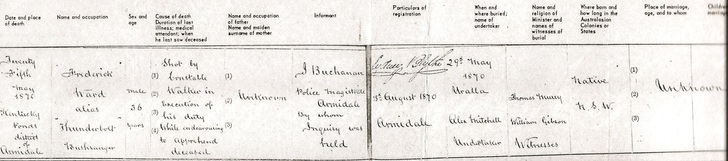 Date and place of death
Name and occupation
Sex and age
Cause of death
Duration of last illness; medical attendant; when he last saw deceased
Name and occupation of father
Name and maiden surname of mother
Informant
Particulars of registration
When and where buried; name of undertaker
Name and religion of Minister and names of witnesses of burial
Where born and how long in the Australasian Colonies or States
Place of marriage, age, and to whom
Children
Twenty
Fifth
May
1870
Kentucky
Ponds
district
of
Armidale
Frederick
Ward
alias
"Thunderbolt"
Bushranger
male
36
years
Shot by
(1) Constable
Walker in
(2) Execution of
his duty
(3) While endeavouring
(4) to apprehend
deceased
(1)
(2) Unknown
(3)
J Buchanan
Police Magistrate
Armidale
By whom
Inquiry was
held
Blythe
1st August 1870
Armidale
29th May
1870
Uralla
Alex Mitchell
Undertaker
Thomas
William Gibson
Witnesses
Native
N.S.W.
(1)
(2) Unknown
(3)